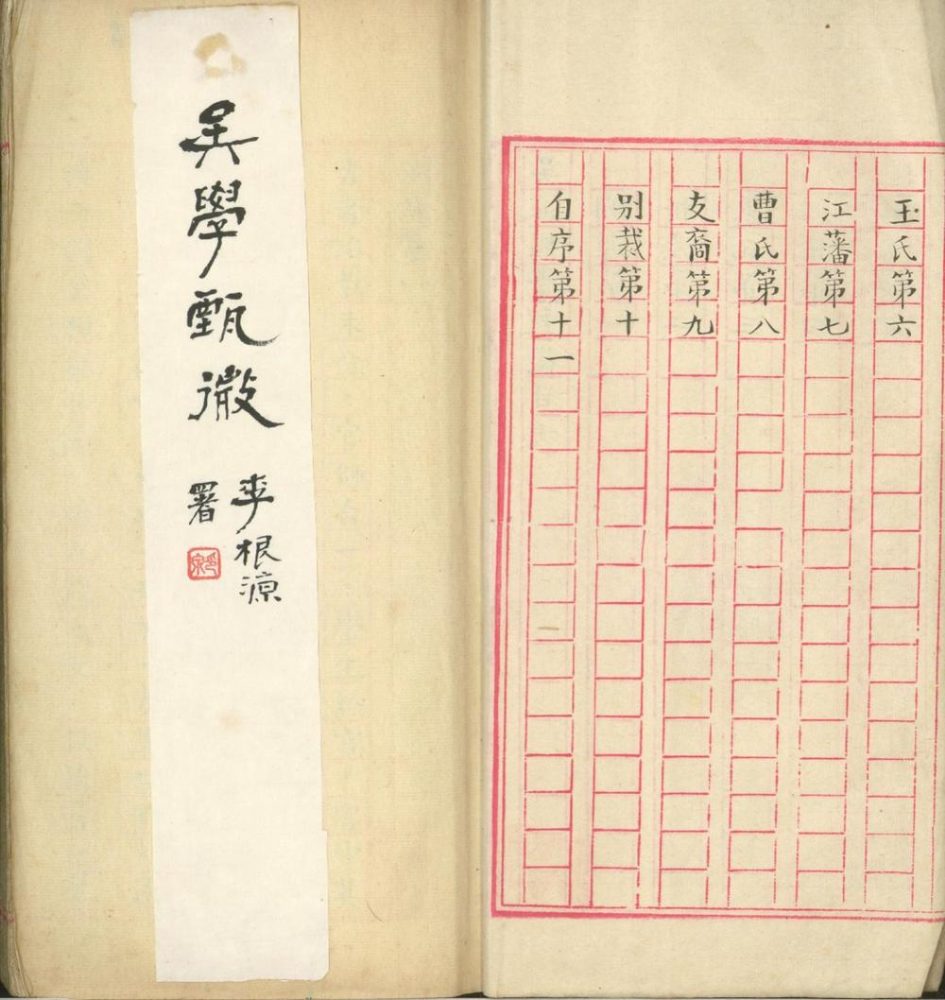 玉氏第六
江藩第七
曹氏第八
支裔第九
别裁第十
自序第十一
吳學甄微
李根源
署
印泉